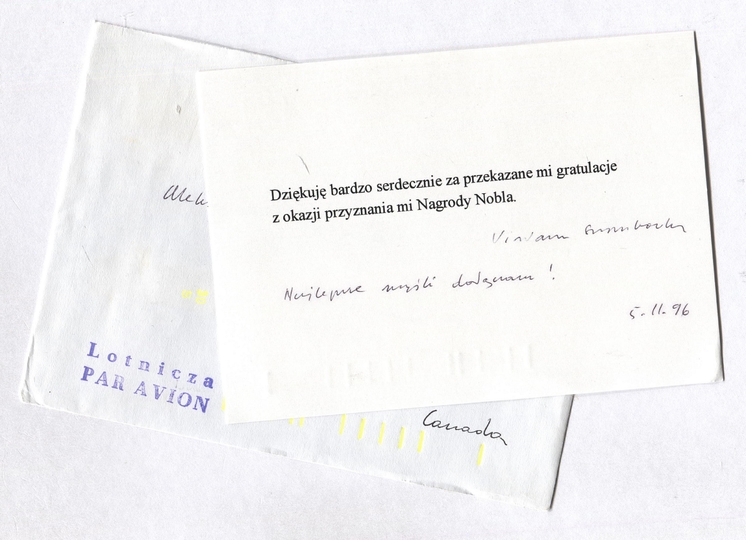 Dziękuję bardzo serdecznie za przekazane mi gratulacje
z okazji przyznania mi Nagrody Nobla.
Wisława Szymborska
Najlepsze myśli dołączam!
5.11.96
Alek
Lotnicza
PAR AVION
Canada